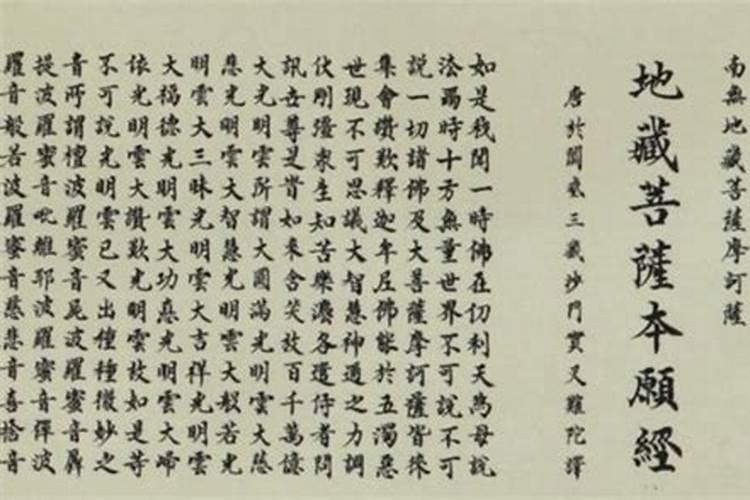 南無地藏菩薩摩訶薩
地藏菩薩本願經
唐於闐國三藏沙門實叉難陀譯
如是我聞一時佛在忉利天為母說
法爾時十方無量世界不可說不可
說一切諸佛及大菩薩摩訶薩皆來
集會讚歎釋迦牟尼佛能於五濁惡
世現不可思議大智慧神通之力調
伏剛彊眾生知苦樂法各遣侍者問
訊世尊是時如來含笑放百千萬億
大光明雲所謂大圓滿光明雲大慈
悲光明雲大智慧光明雲大般若光
明雲大三昧光明雲大吉祥光明雲
大福德光明雲大功德光明雲大歸
依光明雲大讚歎光明雲放如是等
不可說光明雲已又出種種微妙之
音所謂檀波羅蜜音尸波羅蜜音羼
提波羅蜜音毗離耶波羅蜜音禪波
羅音般若波羅蜜音慈悲音喜捨音